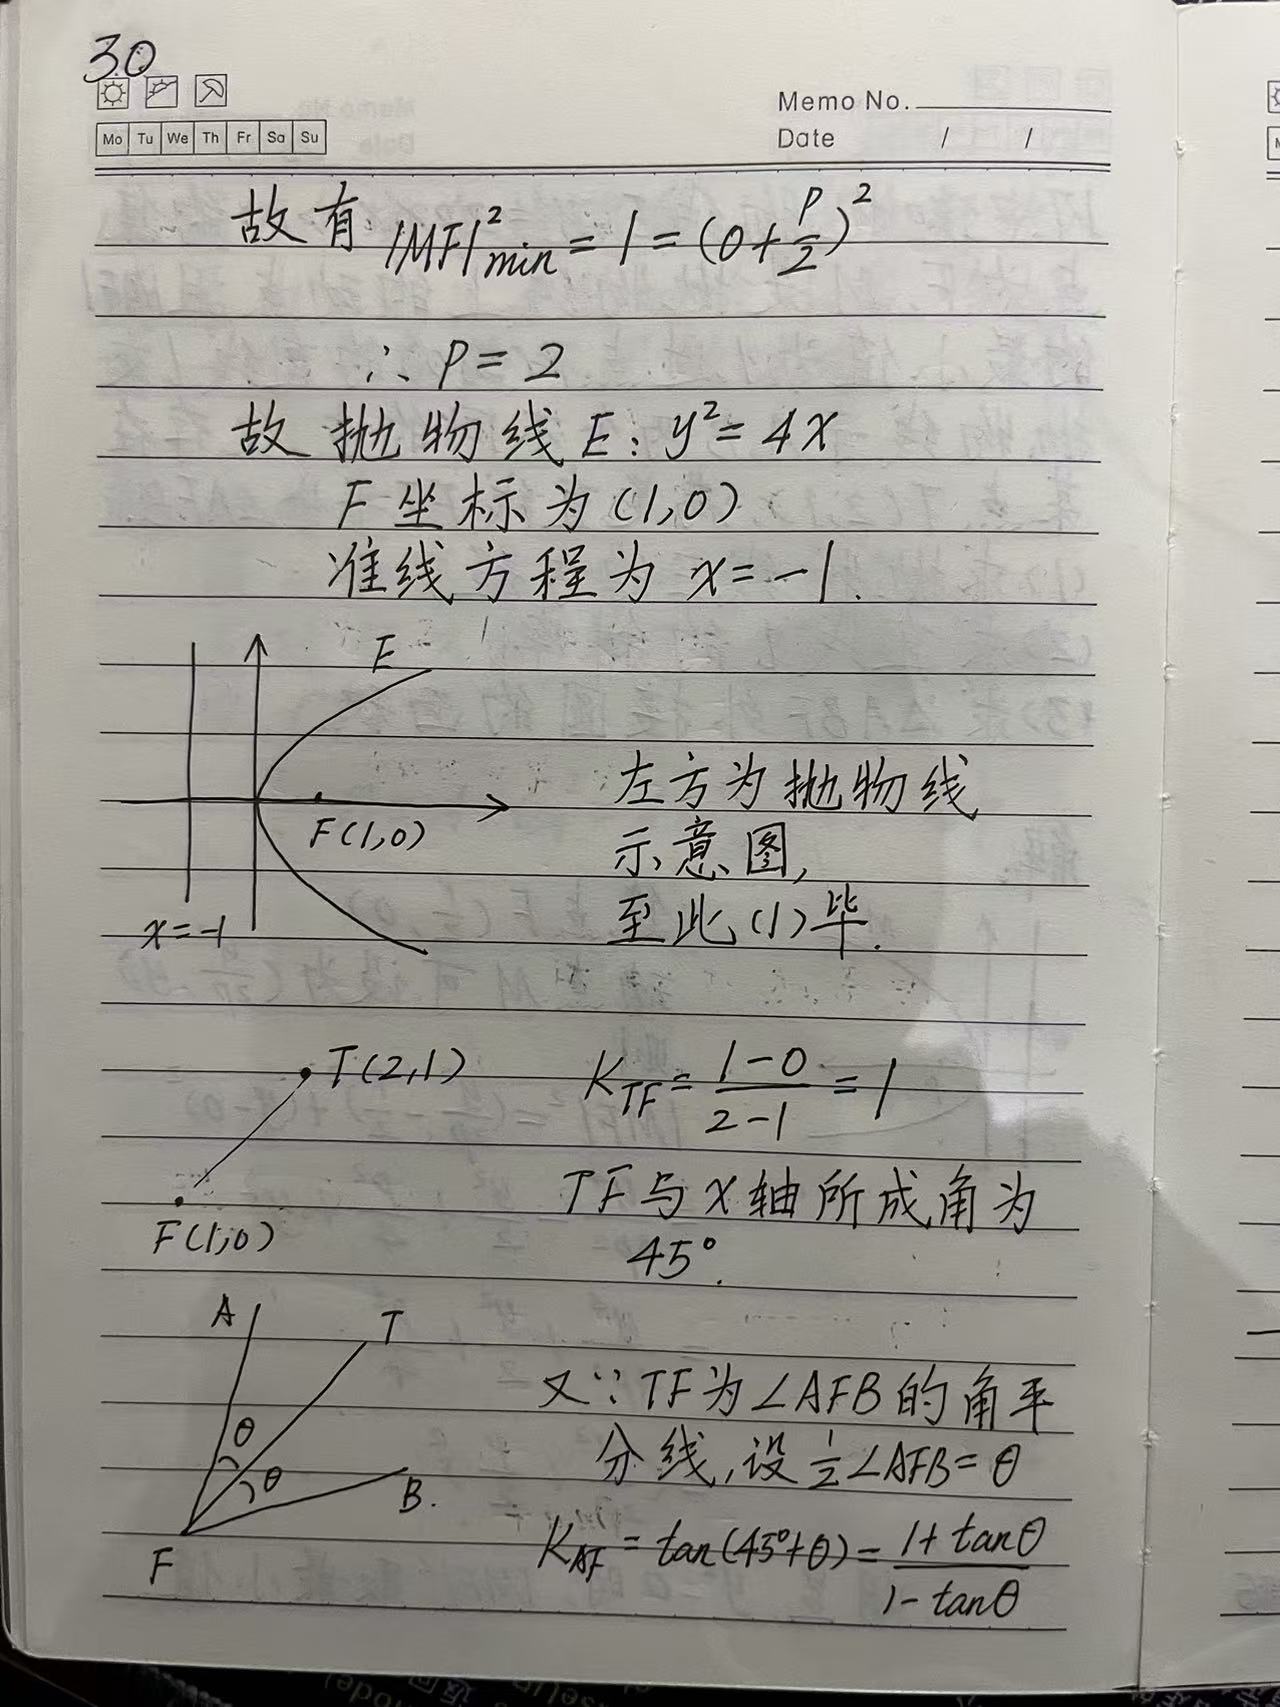 30
Mo Tu We Th Fr Sa Su
Memo No.
Date / /
故有 |MF|²min = 1 = (0 + P/2)²
∴ P = 2
故抛物线 E: y² = 4x
F坐标为(1,0)
准线方程为 x = -1.
E
F(1,0)
x = -1
左方为抛物线
示意图,
至此,(1)毕.
T(2,1)
F(1,0)
K_TF = (1-0)/(2-1) = 1
TF与X轴所成角为
45°.
A
T
θ
θ
B.
F
又∵TF为∠AFB的角平
分线,设½∠AFB = θ
K_AF = tan(45°+θ) = (1+tanθ)/(1-tanθ)